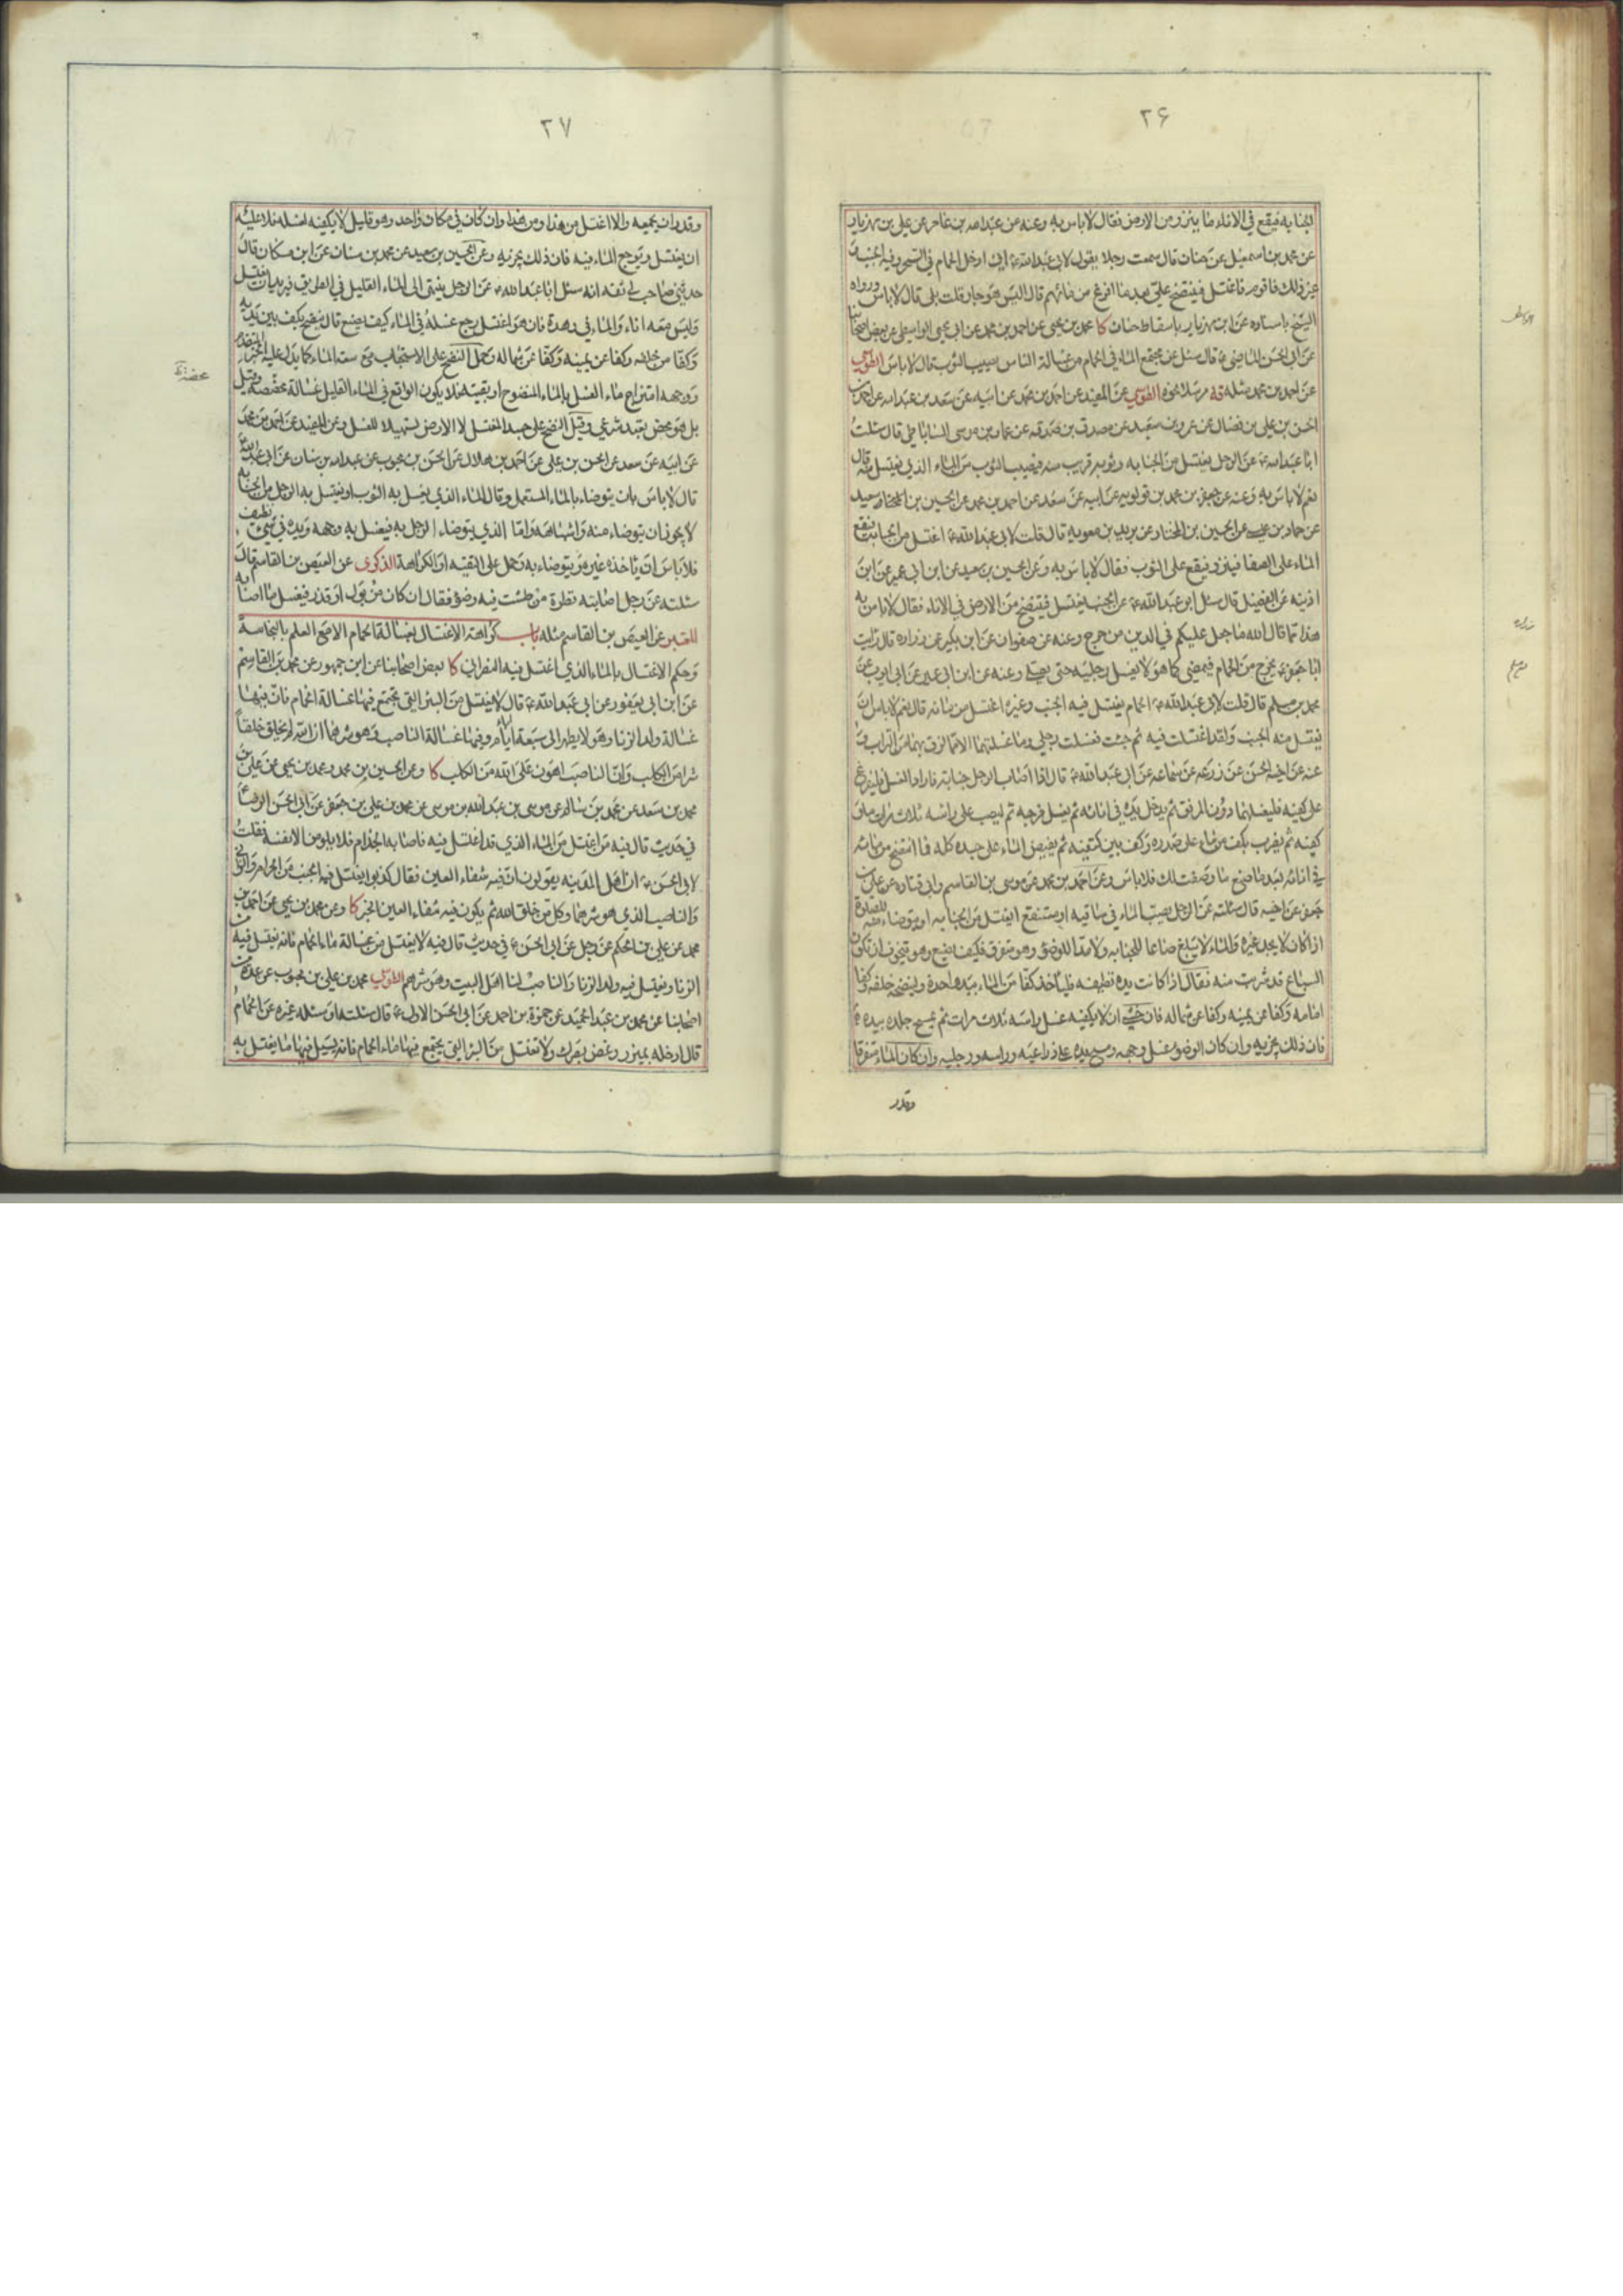 ۲۶
الجنابه فيقع في الاناء ما ينزو من الارض فقال لا باس به وعنه عن عبد الله بن عامر عن علي بن مهزيار
عن محمد بن اسمعيل عن حنان قال سمعت رجلا يقول لابي عبد الله ع اني ادخل الحمام في السحر وفيه الجنب و
غير ذلك فاقوم فاغتسل فينتضح علي بعد ما افرغ من مائهم قال اليس هو جار قلت بلى قال لا باس ورواه
الشيخ باسناده عن ابن مهزيار باسقاط حنان كا محمد بن يحيى عن احمد بن محمد عن ابي يحيى الواسطي عن بعض اصحابنا
عن ابي الحسن الماضي ع قال سئل عن مجتمع الماء في الحمام من غسالة الناس يصيب الثوب قال لا باس الطوسي
عن احمد بن محمد مثله قه مرسلا نحوه الطوسي عن المفيد عن احمد بن محمد عن ابيه عن سعد بن عبد الله عن احمد بن
الحسن بن علي بن فضال عن عمرو بن سعيد عن مصدق بن صدقه عن عمار بن موسى الساباطي قال سئلت
ابا عبد الله ع عن الرجل يغتسل من الجنابه وثوبه قريب منه فيصيب الثوب من الماء الذي يغتسل منه قال
نعم لا باس به وعنه عن جعفر بن محمد بن قولويه عن ابيه عن سعد عن احمد بن محمد عن الحسين بن سعيد
عن حماد بن عيسى عن الحسين بن المختار عن بريد بن معويه قال قلت لابي عبد الله ع اغتسل من الجنابة فيقع
الماء على الصفا فينزو فيقع على الثوب فقال لا باس به وعن الحسين بن سعيد عن ابن ابي عمير عن ابن
اذينه عن الفضيل قال سئل ابو عبد الله ع عن الجنب يغتسل فينتضح من الارض في الاناء فقال لا باس به
هذا مما قال الله ما جعل عليكم في الدين من حرج وعنه عن صفوان عن ابن بكير عن زراره قال رايت
ابا جعفر ع يخرج من الحمام فيمضي كما هو لا يغسل رجليه حتى يصلي وعنه عن ابن ابي عمير عن ابي ايوب عن
محمد بن مسلم قال قلت لابي عبد الله ع الحمام يغتسل فيه الجنب وغيره اغتسل من مائه قال نعم لا باس ان
يغتسل منه الجنب ولقد اغتسلت فيه ثم جئت فغسلت رجلي وما غسلتهما الا مما لزق بهما من التراب و
عنه عن اخيه الحسن عن زرعه عن سماعه عن ابي عبد الله ع قال اذا اصاب الرجل جنابة فاراد الغسل فليفرغ
على كفيه فليغسلهما دون المرفق ثم يدخل يده في انائه ثم يغسل فرجه ثم ليصب على راسه ثلاث مرات ملء
كفيه ثم يضرب بكف من ماء على صدره وكف بين كتفيه ثم يفيض الماء على جسده كله فما انتضح من مائه
في انائه بعد ما صنع ما وصفت لك فلا باس وعن احمد بن محمد عن موسى بن القاسم وابي قتاده عن علي بن
جعفر عن اخيه قال سئلته عن الرجل يصيب الماء في ساقيه او مستنقع ايغتسل من الجنابه او يتوضاء منه للصلوة
اذا كان لا يجد غيره والماء لا يبلغ صاعا للجنابه ولا مدا للوضؤ وهو متفرق فكيف يصنع وهو يتخوف ان تكون
السباع قد شربت منه فقال اذا كانت يده نظيفه فلياخذ كفا من الماء بيد واحدة ولينضحه خلفه وكفا
امامه وكفا عن يمينه وكفا عن شماله فان خشي ان لا يكفيه غسل راسه ثلاث مرات ثم مسح جلده بيده
فان ذلك يجزيه وان كان الوضؤ غسل وجهه ومسح يده على ذراعيه وراسه ورجليه وان كان الماء متفرقا
وقدر
زراره
۲۷
وقدر ان يجمعه والا اغتسل من هذا ومن هذا وان كان في مكان واحد وهو قليل لا يكفيه لغسله فلا عليه
ان يغتسل ويرجع الماء فيه فان ذلك يجزيه وعن الحسين بن سعيد عن محمد بن سنان عن ابن مسكان قال
حدثني صاحب لي ثقه انه سئل ابا عبد الله ع عن الرجل ينتهي الى الماء القليل في الطريق فيريد ان يغتسل
وليس معه اناء والماء في وهدة فان هو اغتسل رجع غسله في الماء كيف يصنع قال ينضح بكف بين يديه
وكفا من خلفه وكفا عن يمينه وكفا عن شماله وحمل النضح على الاستحباب مع سعة الماء كما يدل عليه الخبر المتقدم
ووجهه امتزاج ماء الغسل بالماء المنضوح او بقيته فلا يكون الواقع في الماء القليل غسالة محضة وقيل
بل هو محض تعبد شرعي وقيل النضح على جسد المغتسل لا الارض تسهيلا للغسل وعن المفيد عن احمد بن محمد
عن ابيه عن سعد عن الحسن بن علي عن احمد بن هلال عن الحسن بن محبوب عن عبد الله بن سنان عن ابي عبد الله ع
قال لا باس بان يتوضاء بالماء المستعمل وقال الماء الذي يغسل به الثوب او يغتسل به الرجل من الجنابه
لا يجوز ان يتوضاء منه واشباهه واما الذي يتوضاء الرجل به فيغسل به وجهه ويده في شيء نظيف
فلا باس ان ياخذه غيره ويتوضاء به وحمل على التقيه او الكراهة الذكرى عن العيص بن القاسم قال
سئلته عن رجل اصابته قطرة من طشت فيه وضؤ فقال ان كان من بول او قذر فيغسل ما اصابه
المعتبر عن العيص بن القاسم مثله باب كراهة الاغتسال بغسالة الحمام الا مع العلم بالنجاسة
وحكم الاغتسال بالماء الذي اغتسل فيه النصراني كا بعض اصحابنا عن ابن جمهور عن محمد بن القاسم
عن ابن ابي يعفور عن ابي عبد الله ع قال لا تغتسل من البئر التي تجتمع فيها غسالة الحمام فان فيها
غسالة ولد الزنا وهو لا يطهر الى سبعة اباء وفيها غسالة الناصب وهو شرهما ان الله لم يخلق خلقا
شرا من الكلب وان الناصب اهون على الله من الكلب كا وعن الحسين بن محمد ومحمد بن يحيى عن علي بن
محمد بن سعد عن محمد بن سالم عن موسى بن عبد الله بن موسى عن محمد بن علي بن جعفر عن ابي الحسن الرضا ع
في حديث قال فيه من اغتسل من الماء الذي قد اغتسل فيه فاصابه الجذام فلا يلومن الا نفسه فقلت
لابي الحسن ع ان اهل المدينه يقولون ان فيه شفاء العين فقال كذبوا يغتسل فيه الجنب من الحرام والزاني
والناصب الذي هو شرهما وكل من خلق الله ثم يكون فيه شفاء العين الخبر كا وعن محمد بن يحيى عن احمد بن
محمد عن علي بن الحكم عن رجل عن ابي الحسن ع في حديث قال فيه لا تغتسل من غسالة ماء الحمام فانه يغتسل فيه من
الزنا ويغتسل فيه ولد الزنا والناصب لنا اهل البيت وهو شرهم الطوسي محمد بن علي بن محبوب عن عدة من
اصحابنا عن محمد بن عبد الحميد عن حمزة بن احمد عن ابي الحسن الاول ع قال سئلته او سئله غيره عن الحمام
قال ادخله بمئزر وغض بصرك ولا تغتسل من البئر التي يجتمع فيها ماء الحمام فانه يسيل فيها ما يغتسل به